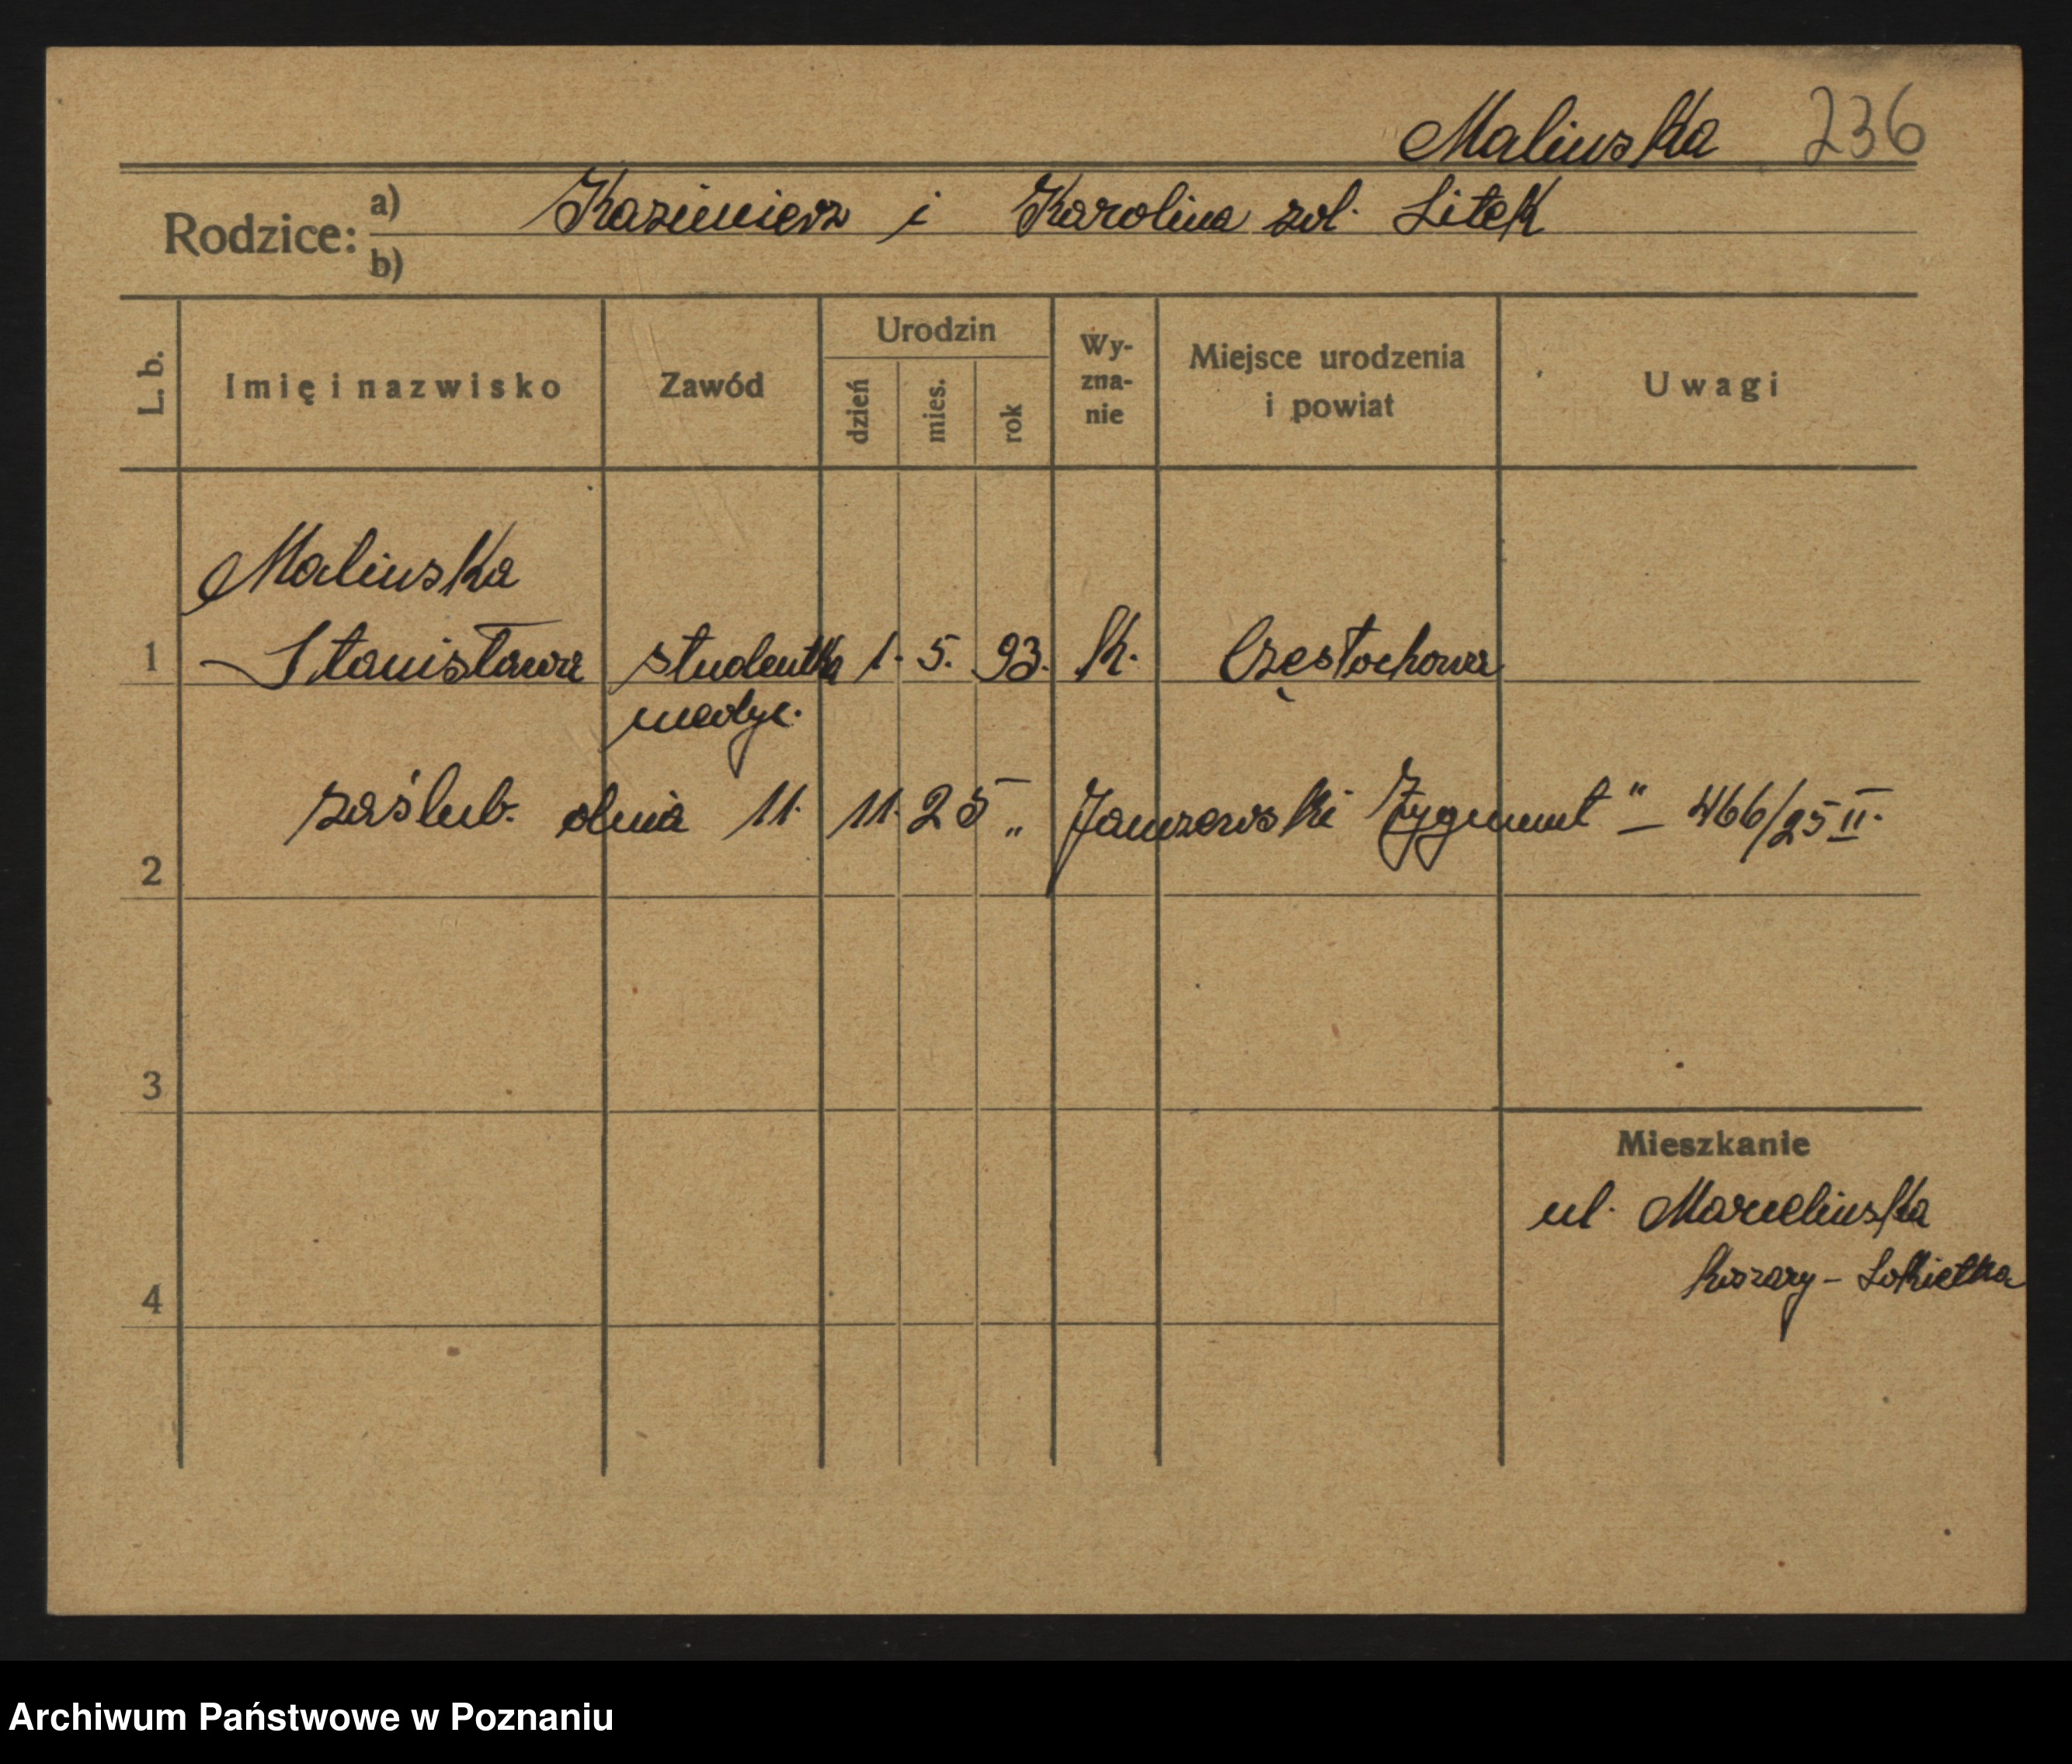 Malinska 236
Rodzice: a) Kazimierz i Karolina zd. Litek
b)
L. b. Imię i nazwisko Zawód Urodzin dzień mies. rok Wy-zna-nie Miejsce urodzenia i powiat Uwagi
Malinska
1 Stanisława studentka 1. 5. 93. k. Częstochowa
medyc.
zaślub. dnia 11. 11. 25 „Janczewski Zygmunt" – 466/25 II.
2
3
Mieszkanie
ul. Marcelinska
Koszary – Łokietka
4
Archiwum Państwowe w Poznaniu